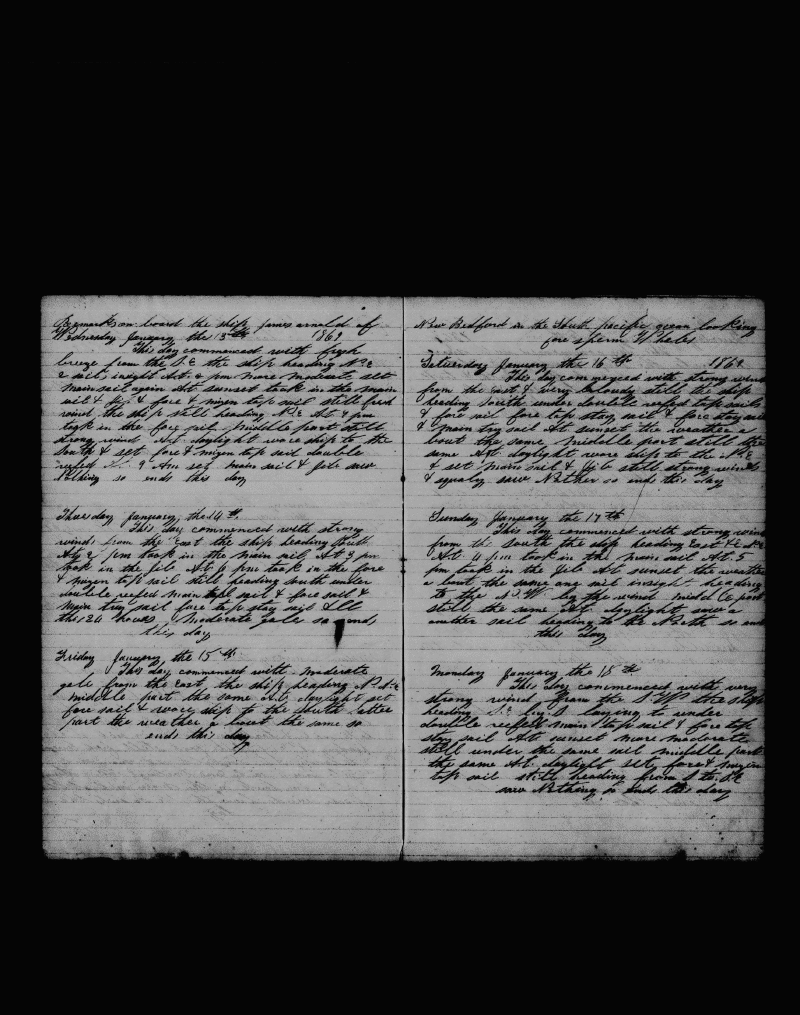 Remarks on board the ship James arnold of
Wednesday January the 13th 1869
This day commenced with fresh
breeze from the S.E the ship heading N.E
2 sails insight At 2 pm more moderate set
main sail again At sunset took in the main
sail & jib & fore & mizen top sail still fresh
wind the ship still heading N.E At 7 pm
took in the fore sail middle part still
strong wind At daylight wore ship to the
South & set fore & mizen top sail double
reefed 9 Am set main sail & jib saw
Nothing so ends this day
Thursday January the 14th
This day commenced with strong
winds from the East the ship heading South
At 2 pm took in the main sail At 3 pm
took in the jib At 6 pm took in the fore
& mizen top sail still heading south under
double reefed main top sail & fore sail &
main try sail fore top stay sail & All
the 24 hours moderate gales so ends
this day
Friday January the 15th
This day commenced with moderate
gale from the East the ship heading N.N.E
middle part the same At daylight set
fore sail & wore ship to the South latter
part the weather a bout the same so
ends this day
New Bedford in the South pacific ocean looking
fore sperm Whales
Saturday January the 16th 1869
This day commenced with strong wind
from the east & very cloudy still the ship
heading South under double reefed top sails
& fore sail fore top stay sail & fore stay sail
& main try sail At sunset the weather a
bout the same middle part still the
same At daylight wore ship to the N.E
& set main sail & jib still strong winds
& squaly saw Nothen so ends this day
Sunday January the 17th
This day commenced with strong wind
from the South the ship heading East & E.N.E
At 4 pm took in the main sail At 5
pm took in the jib At sunset the weather
a bout the same one sail insight heading
to the N.W. by the wind middle part
still the same At daylight saw a
another sail heading to the North so ends
this day
Monday January the 18th
This day commenced with very
strong wind from the S.W the ship
heading S.E by S laying to under
double reefed main top sail & fore top
stay sail At sunset more moderate
still under the same sail middle part
the same At daylight set fore & mizen
top sail still heading from S to S.E
saw Nothing so ends this day